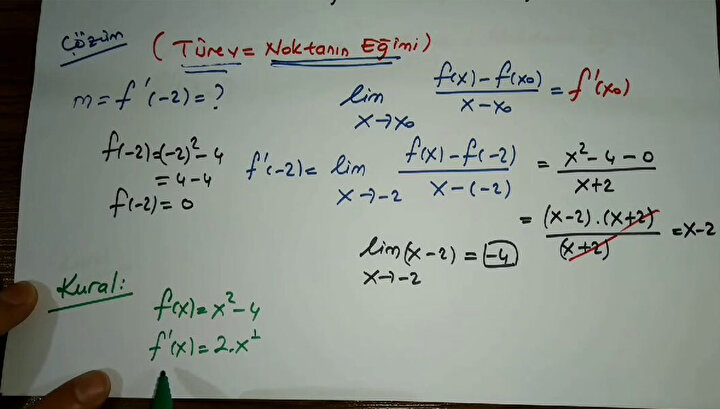 Çözüm (Türev = Noktanın Eğimi)
m = f'(-2) = ?
lim x→x₀ (f(x) - f(x₀)) / (x - x₀) = f'(x₀)
f(-2) = (-2)² - 4
= 4 - 4
f(-2) = 0
f'(-2) = lim x→-2 (f(x) - f(-2)) / (x - (-2)) = (x² - 4 - 0) / (x + 2)
= (x - 2).(x + 2) / (x + 2) = x - 2
lim x→-2 (x - 2) = -4
Kural:
f(x) = x² - 4
f'(x) = 2.x¹